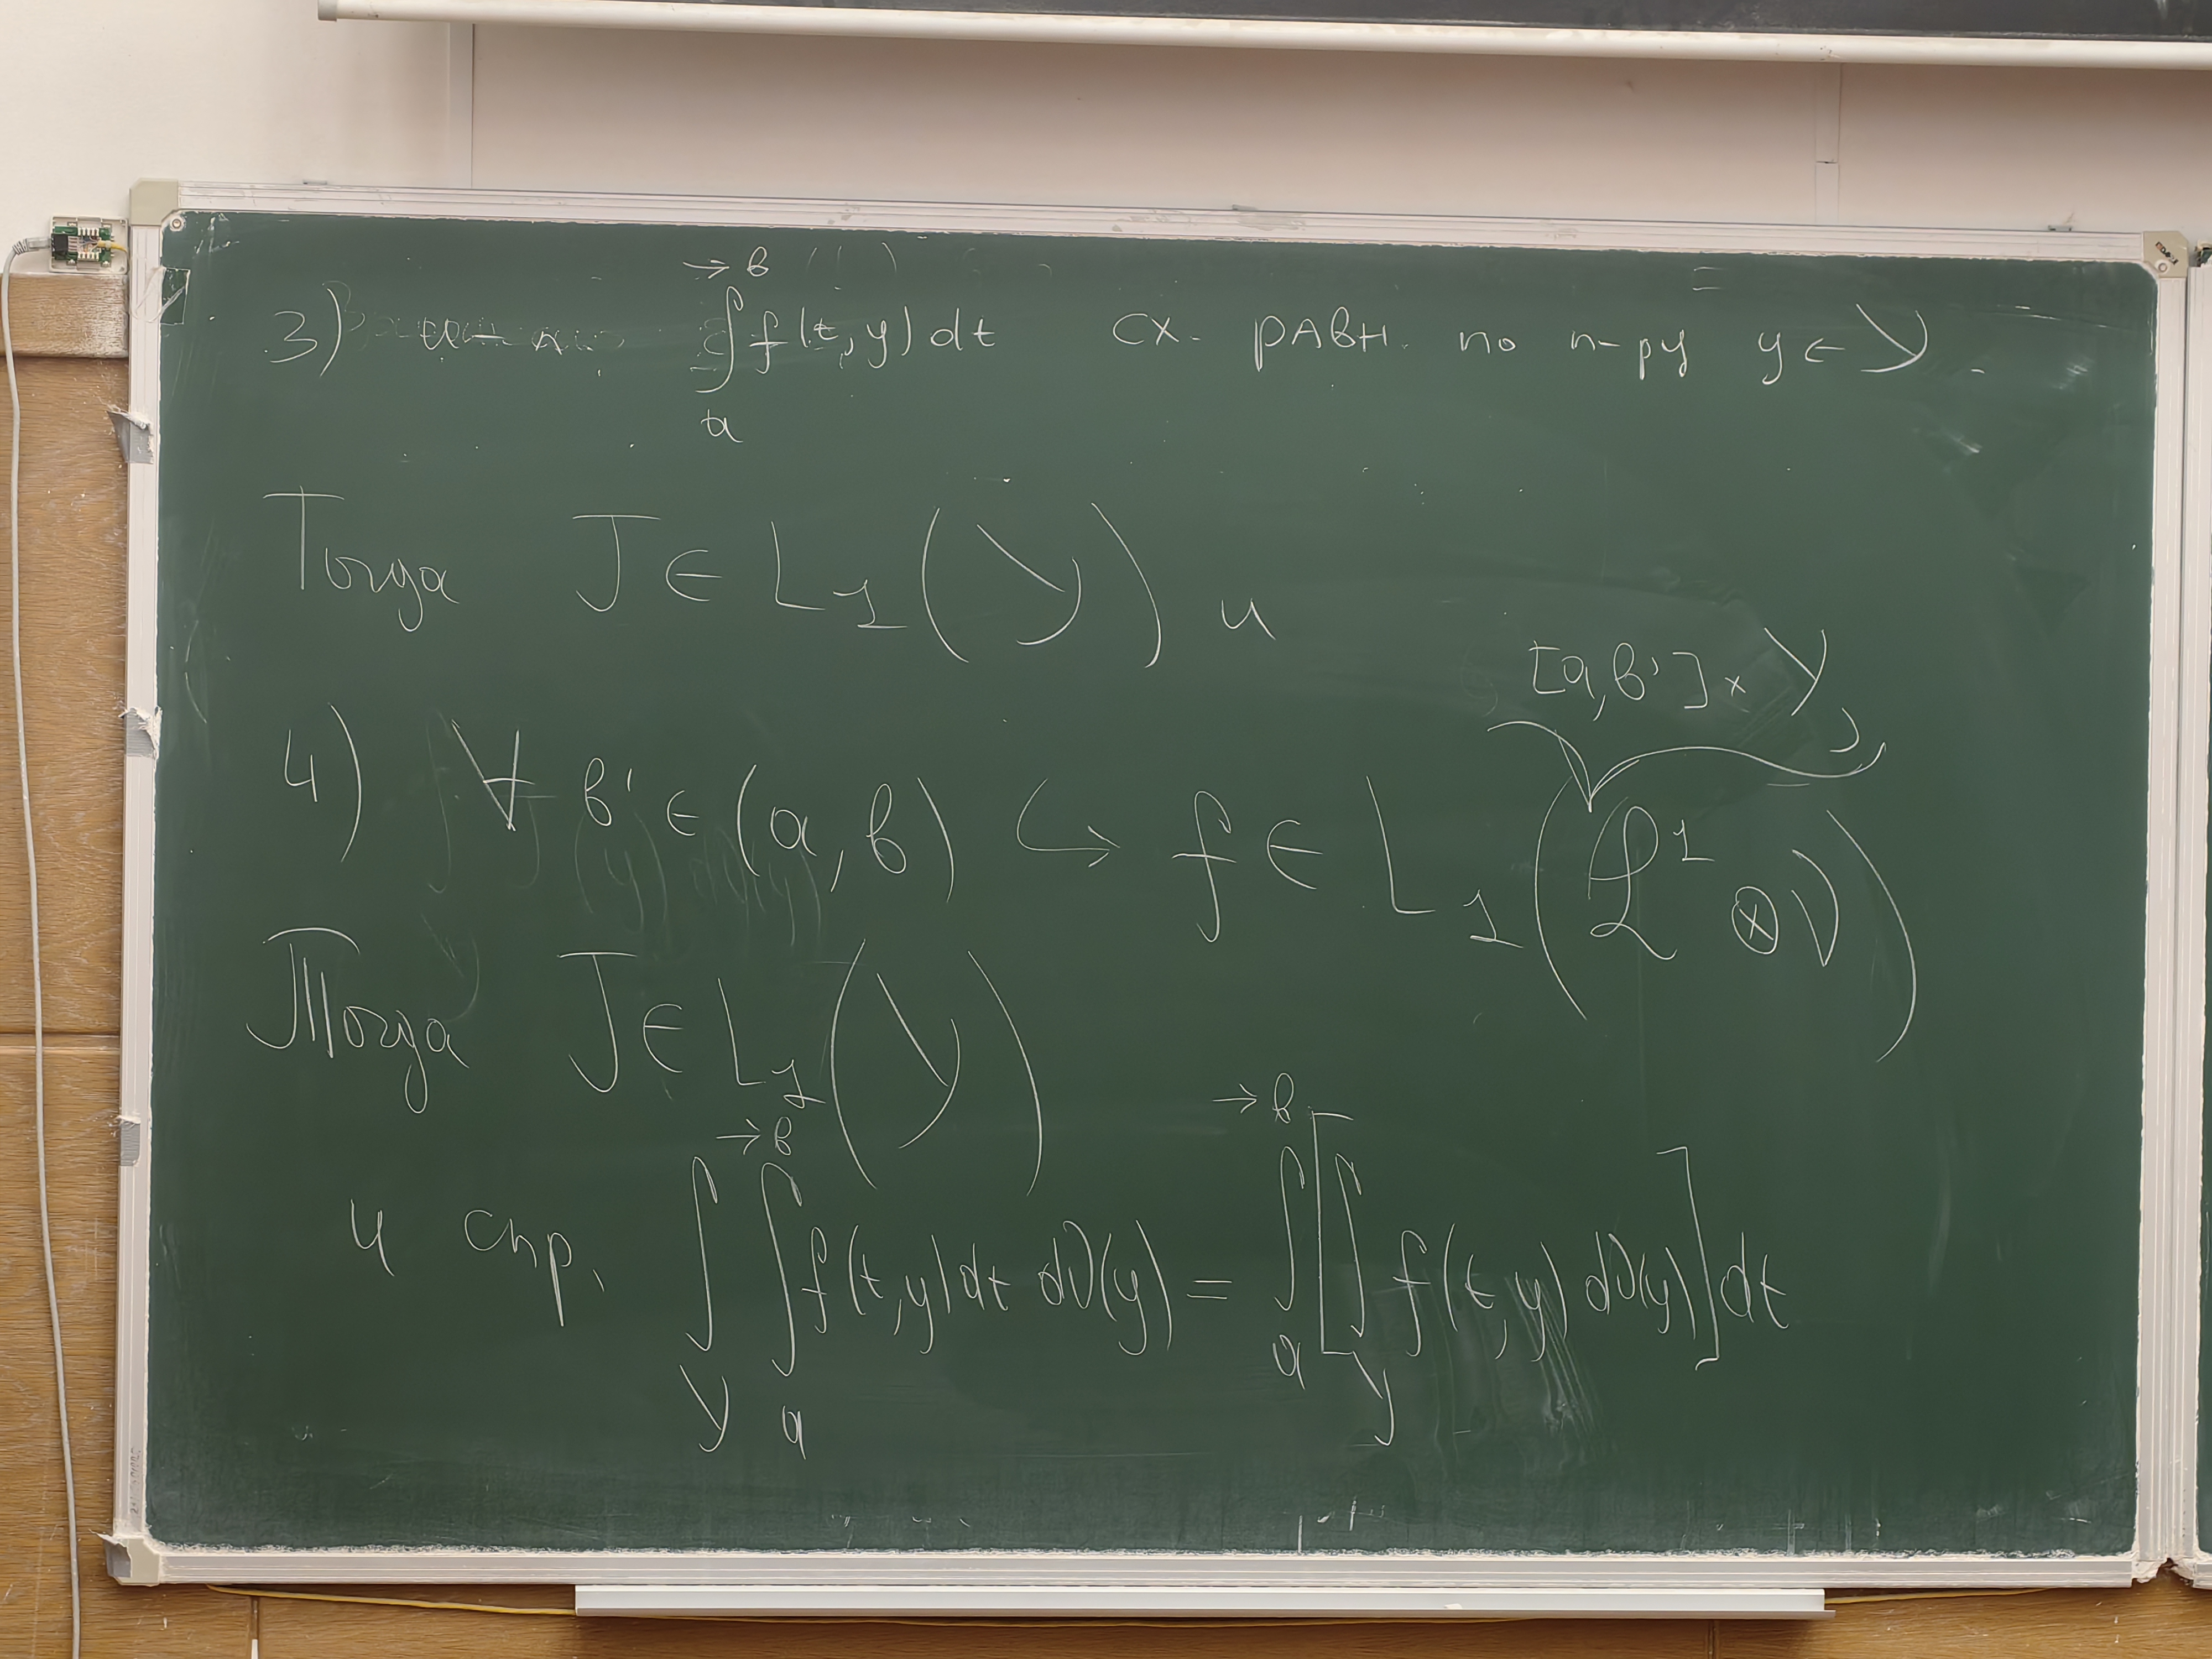 3) ∫_a^{→b} f(t,y)dt сх. равн. по п-ру y ∈ Y.
Тогда J ∈ L_1(Y) и
[a,b'] × Y,
4) ∀ b' ∈ (a,b) ↪ f ∈ L_1(ℒ^1 ⊗ ν)
Тогда J ∈ L_1(Y)
и спр. ∫_Y ∫_a^{→b} f(t,y)dt dν(y) = ∫_a^{→b} [∫_Y f(t,y) dν(y)] dt